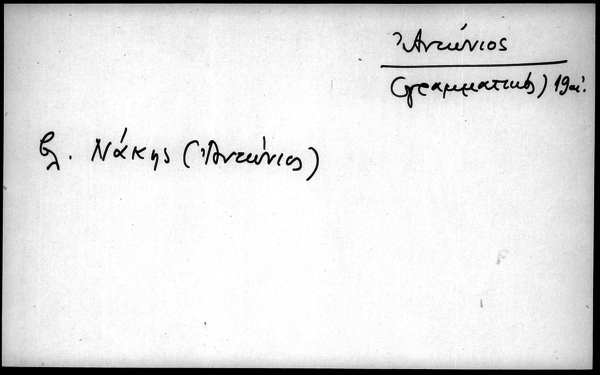 Ἀντώνιος
(γραμματικός) 19αι.
βλ. Νάκης (Ἀντώνιος)